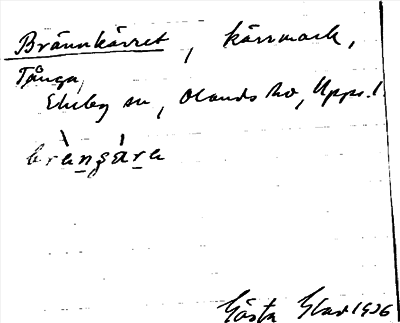 Brännkärret, kärrmark,
Tånga,
Ekeby sn, Olands hd, Upps. l.
bràngára
Gösta Glad 1926